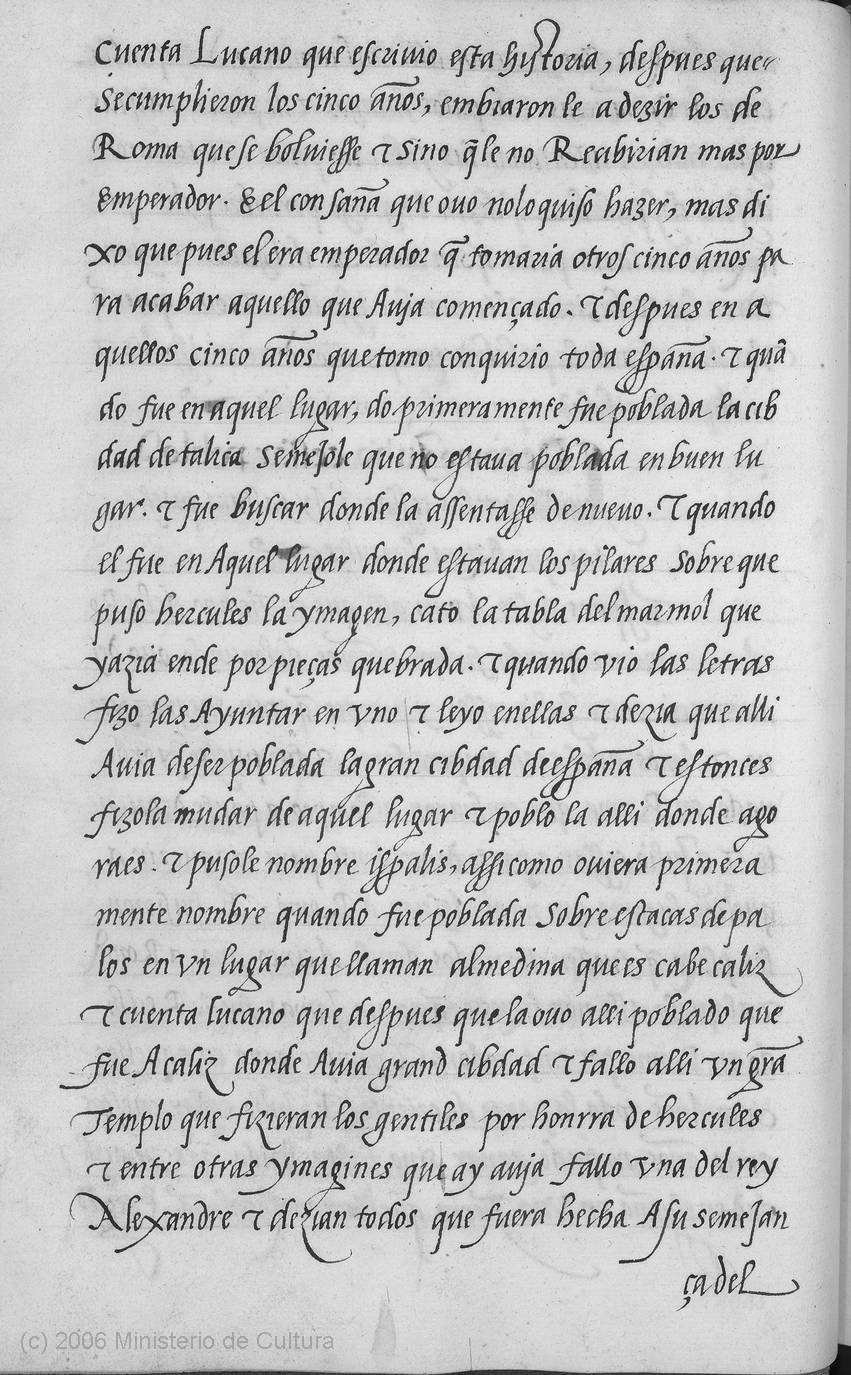 Cuenta Lucano que escriuio esta historia, despues que
Se cumplieron los cinco años, embiaron le a dezir los de
Roma que se boluiesse τ sino q̃ le no Recibirian mas por
Emperador. E el con saña que ouo nolo quiso hazer, mas di
xo que pues el era emperador q̃ tomaria otros cinco años pa
ra acabar aquello que Auja començado. τ despues en a
quellos cinco años que tomo conquirio toda españa. τ quã
do fue en aquel lugar, do primeramente fue poblada la cib
dad de talica Semejole que no estaua poblada en buen lu
gar. τ fue buscar donde la assentasse de nueuo. τ quando
el fue en Aquel lugar donde estauan los pilares Sobre que
puso hercules la ymagen, cato la tabla del marmol que
yazia ende por pieças quebrada. τ quando vio las letras
fizo las Ayuntar en vno τ leyo enellas τ dezia que alli
Auia de ser poblada la gran cibdad de españa τ estonces
fizola mudar de aquel lugar τ poblo la alli donde ago
ra es. τ pusole nombre ispalis, assi como ouiera primera
mente nombre quando fue poblada Sobre estacas de pa
los en vn lugar que llaman almedina que es cabe caliz
τ cuenta lucano que despues que la ouo alli poblado que
fue A caliz donde Auia grand cibdad τ fallo alli vn grã
Templo que fizieran los gentiles por honrra de hercules
τ entre otras ymagines que ay auja fallo vna del rey
Alexandre τ dezian todos que fuera hecha A su semejan
ça del
(c) 2006 Ministerio de Cultura